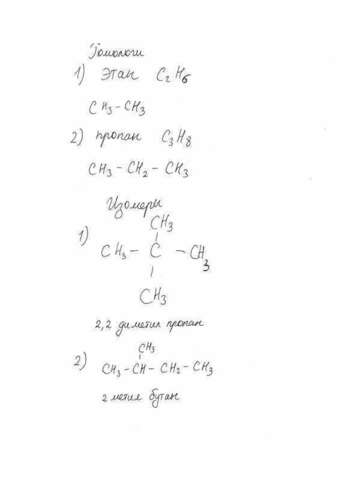 Гомологи
1) Этан C₂H₆
CH₃-CH₃
2) пропан C₃H₈
CH₃ - CH₂ - CH₃
Изомеры
CH₃
1) CH₃ - C - CH₃
CH₃
2,2 диметил пропан
CH₃
2) CH₃ - CH - CH₂ - CH₃
2 метил бутан